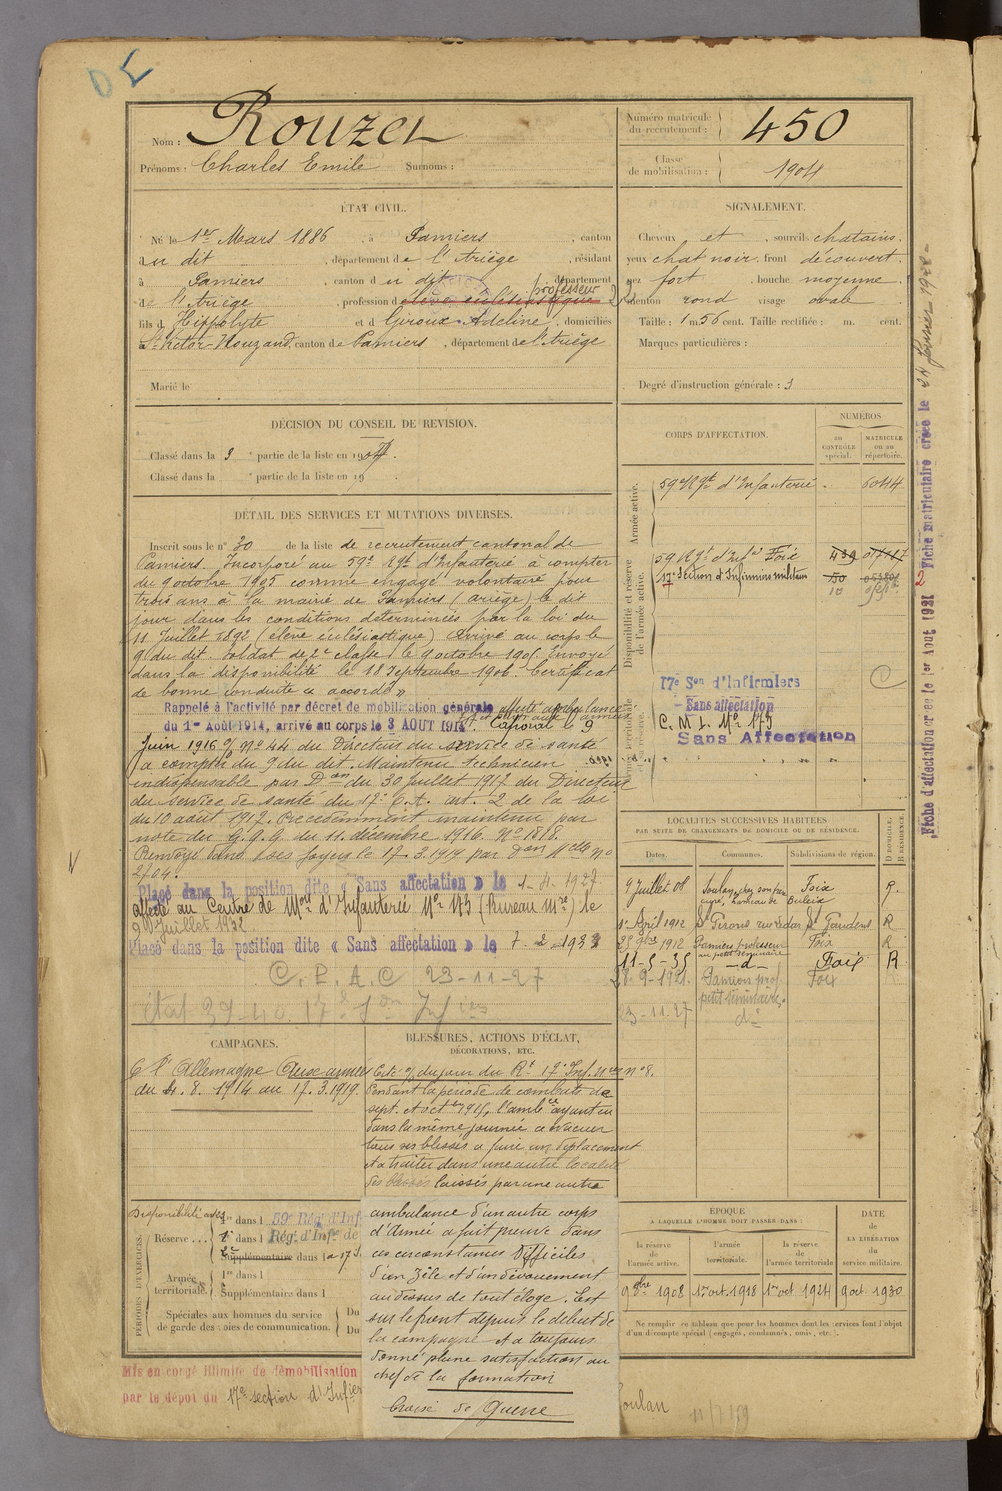 Nom : Rouzel
Prénoms : Charles Emile Surnoms :
Numéro matricule du recrutement : 450
Classe de mobilisation : 1904
ÉTAT CIVIL.
Né le 1er Mars 1886, à Pamiers, canton
du dit, département de l'Ariège, résidant
à Pamiers, canton du dit, département
de l'Ariège, profession d élève ecclésiastique professeur
fils d Hippolyte et d Giroux Adeline, domiciliés
à St Victor-Rouzaud, canton de Pamiers, département de l'Ariège
Marié le
SIGNALEMENT.
Cheveux et sourcils chatains.
yeux chat noir. front découvert.
nez fort, bouche moyenne
menton rond visage ovale
Taille : 1 m. 56 cent. Taille rectifiée : m. cent.
Marques particulières :
Degré d'instruction générale : 3
DÉCISION DU CONSEIL DE REVISION.
Classé dans la 3 e partie de la liste en 1907.
Classé dans la e partie de la liste en 19 .
DÉTAIL DES SERVICES ET MUTATIONS DIVERSES.
Inscrit sous le n° 30 de la liste de recrutement cantonal de
Pamiers. Incorporé au 59e Rgt d'Infanterie à compter
du 9 octobre 1905 comme engagé volontaire pour
trois ans à la mairie de Pamiers (ariège) le dit
jour dans les conditions déterminées par la loi du
11 Juillet 1892 (élève ecclésiastique) Arrivé au corps le
9 du dit. Soldat de 2e classe le 9 octobre 1905. Envoyé
dans la disponibilité le 18 Septembre 1906. Certificat
de bonne conduite "accordé"
Rappelé à l'activité par décret de mobilisation générale affecté ambulance
du 1er Août 1914, arrivé au corps le 3 AOUT 1914. Caporal le 9
Juin 1916 o/ No 44 du Directeur du service de santé
à compter du 9 du dit. Maintenu technicien
indispensable par Don du 30 Juillet 1917 du Directeur
du service de santé du 17e C.A. art. 2 de la loi
du 10 août 1917. Précédemment maintenu par
note du G.Q.G. du 11 décembre 1916 No 1818.
Renvoyé dans ses foyers le 17.3.1919 par Don Mlle no
2704.
Placé dans la position dite « Sans affectation » le 1-4-1927
affecté au Centre de Mon d'Infanterie No 173 (Bureau Mre) le
Juillet 1932
Placé dans la position dite « Sans affectation » le 7-2-1933
C.P.A.C 23-11-27
état 39-40. 17e Son Infies
CORPS D'AFFECTATION.
NUMÉROS
au CONTRÔLE spécial.
MATRICULE ou au répertoire.
Armée active.
59e Rgt d'Infanterie . 6044
Disponibilité et réserve de l'armée active.
59 Rgt d'Infie Foix 439
17e Section d'Infirmiers militaires
17e Son d'Infirmiers
- Sans affectation
C. M. I. No 173
Sans Affectation
Fiche d'affectation créée le 1er Aout 1921
2 Fiche matriculaire créée le 24 février 1928
LOCALITÉS SUCCESSIVES HABITÉES
PAR SUITE DE CHANGEMENTS DE DOMICILE OU DE RÉSIDENCE.
Dates. Communes. Subdivisions de région. D DOMICILE. R RÉSIDENCE.
9 Juillet 08 Soulan, chez son frère curé, hameau de Buleix Foix R.
1er Avril 1912 St Girons St Gaudens R
1912 Pamiers professeur au petit séminaire Foix R
11-5-35 -d- Foix R
28-9-1921. Pamiers prof. petit séminaire. Foix
23-11-27 do
CAMPAGNES.
C l'Allemagne Aux armées
du 4.8.1914 au 17.3.1919.
BLESSURES, ACTIONS D'ÉCLAT,
DÉCORATIONS, ETC.
Cité o/ du jour du Rt 17e Infirers no 8.
Pendant la période de combats de
sept. et oct bre 1915, l'ambce ayant eu
dans la même journée à évacuer
tous ses blessés à faire un déplacement
et à traiter dans une autre localité
des blessés laissés par une autre
ambulance d'un autre corps
d'Armée a fait preuve dans
ces circonstances difficiles
d'un zèle et d'un dévouement
au dessus de tout éloge. Est
sur le front depuis le début de
la campagne et a toujours
donné pleine satisfaction au
chef de la formation
Croix de Guerre
PÉRIODES D'EXERCICES.
Disponibilité
Réserve ... 1re dans l 59e Rég. d'Inf.
2e dans l Rég. d'Infie de
Supplémentaire dans l
Armée territoriale. 1re dans l
Supplémentaire dans l
Spéciales aux hommes du service de garde des voies de communication. Du
Du
ÉPOQUE
A LAQUELLE L'HOMME DOIT PASSER DANS :
la réserve de l'armée active. l'armée territoriale. la réserve de l'armée territoriale
DATE DE LA LIBÉRATION du service militaire.
9 8bre 1908 1er oct. 1918 1er oct 1924 9 oct. 1930
Ne remplir ce tableau que pour les hommes dont les services font l'objet
d'un décompte spécial (engagés, condamnés, omis, etc.).
Mis en congé illimité de démobilisation
par le dépôt du 17e section d'Infier
Soulan